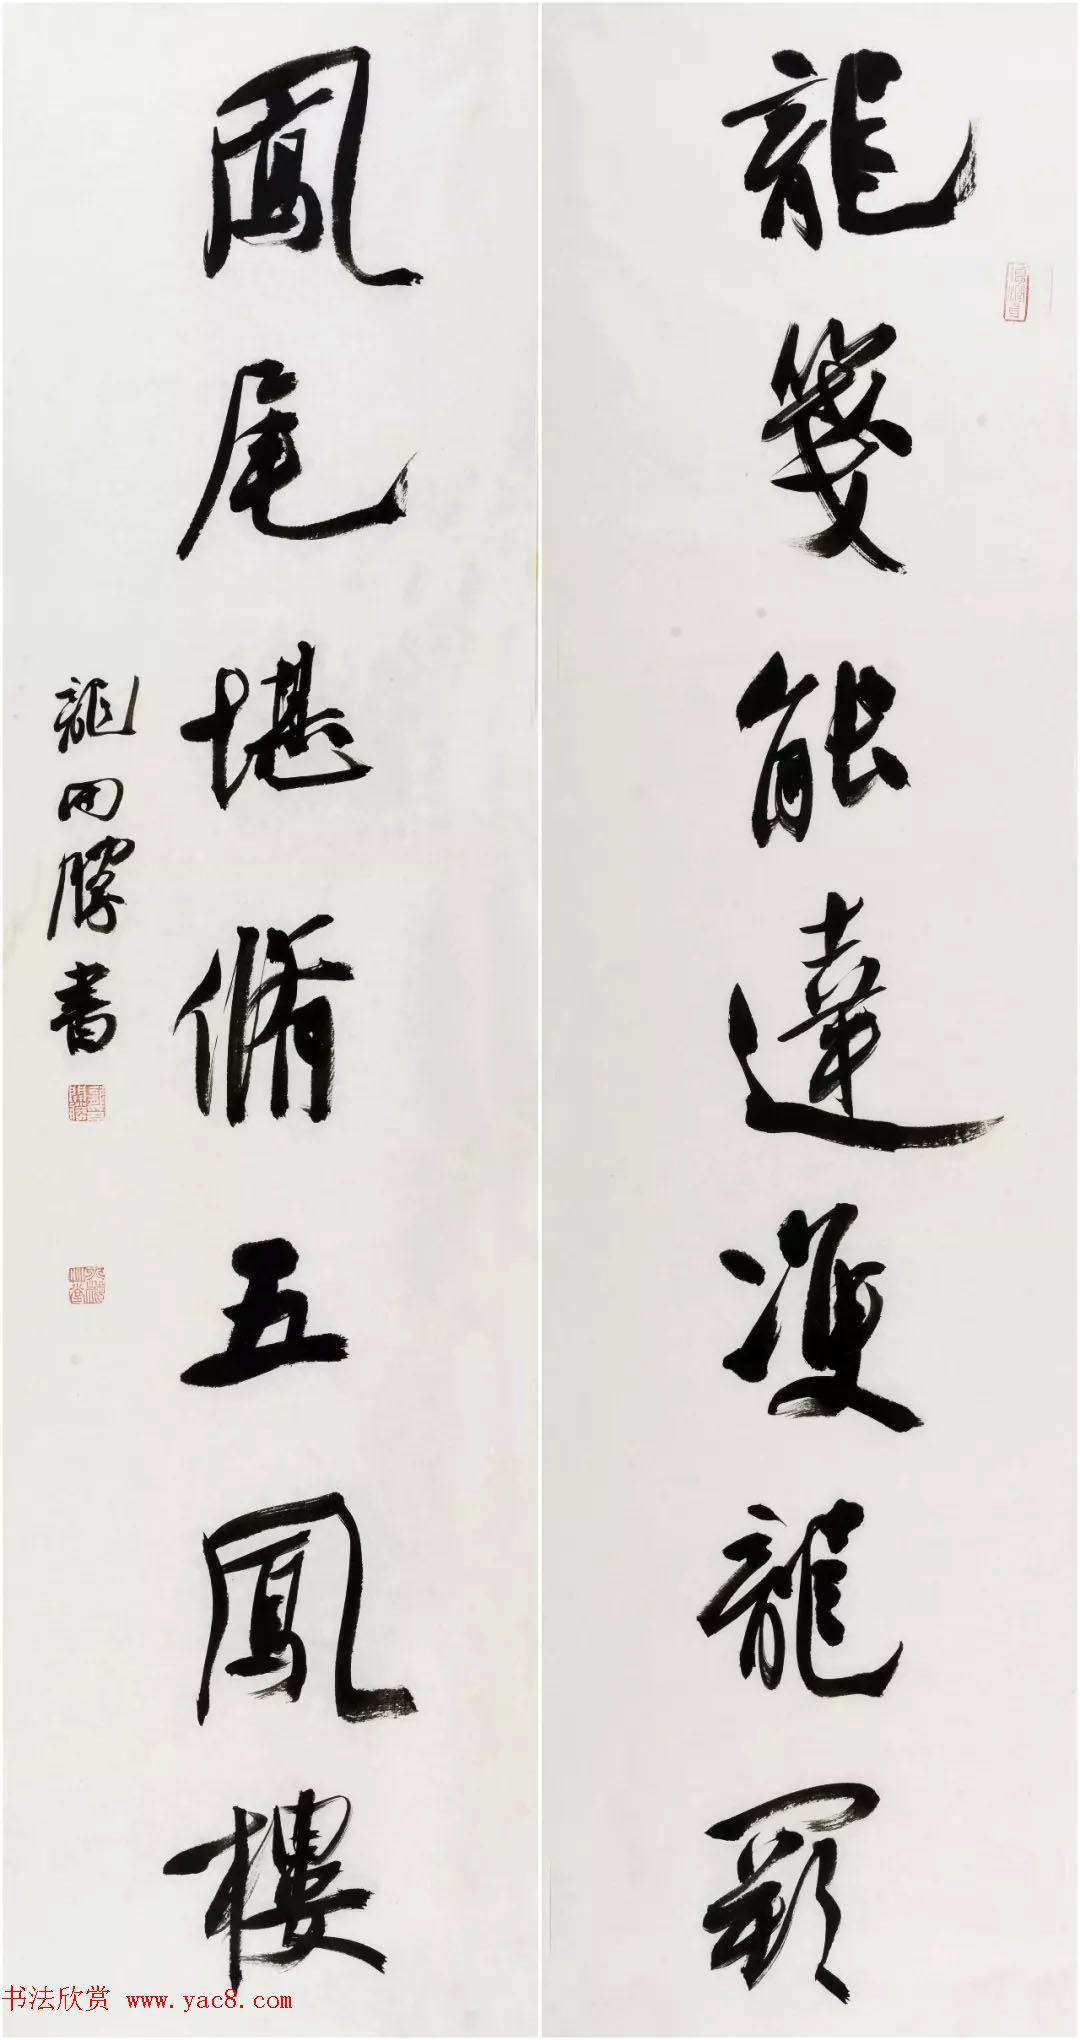 龍箋能達雙龍闕
鳳尾堪脩五鳳樓
龍開勝書
书法欣赏 www.yac8.com